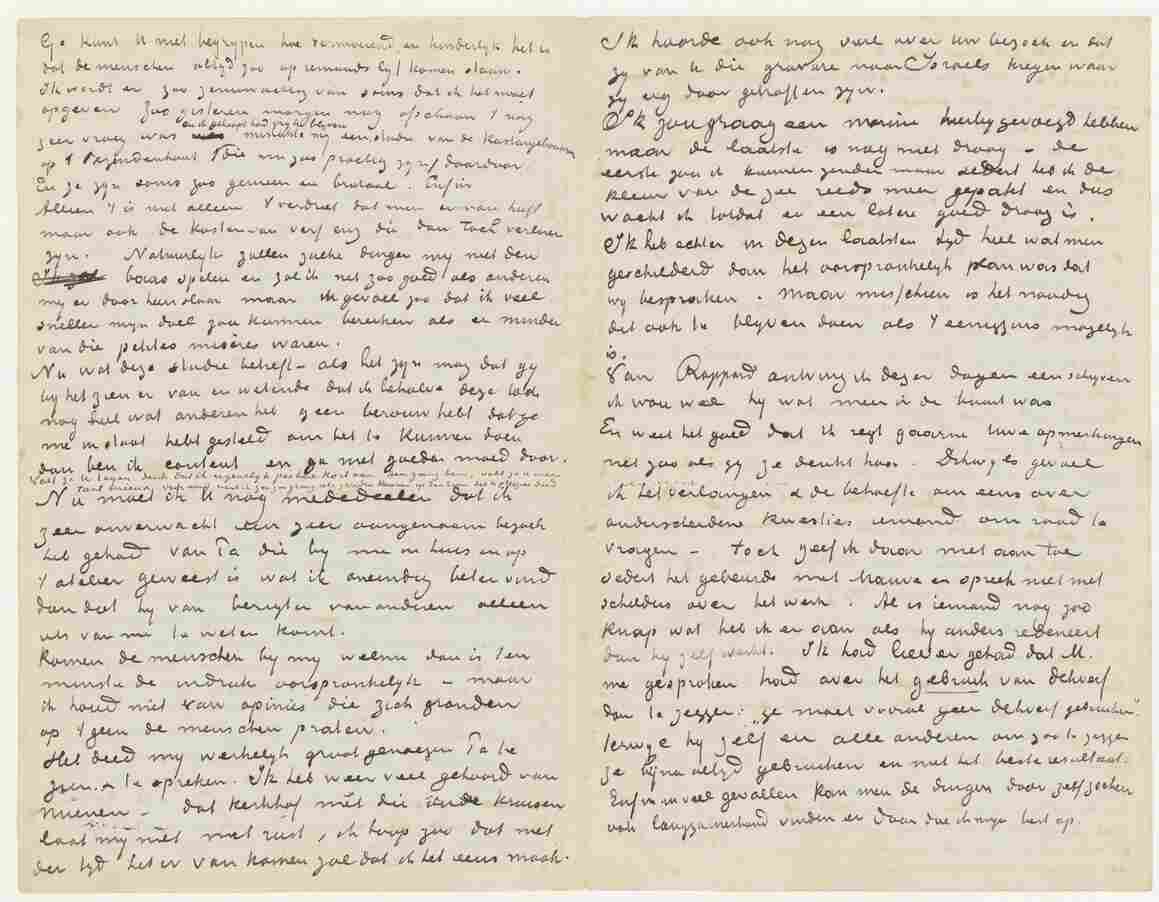 Ge kunt U niet begrypen hoe vermoeiend en hinderlyk het is
dat de menschen altyd zoo op iemands lyf komen staan.
Ik wordt er zoo zenuwachtig van soms dat ik het moet
opgeven. Zoo gisteren morgen nog ofschoon t nog
en ik gehoopt had vry te blyven
zeer vroeg was mislukte my een studie van de kastanjeboomen
op t Bezuidenhout (die nu zoo prachtig zyn) daardoor.
En ze zyn soms zoo gemeen en brutaal. Enfin
Alleen t is niet alleen t verdriet dat men ervan heeft
maar ook de kosten van verf enz die dan toch verloren
zyn. Natuurlyk zullen zulke dingen my niet den
baas spelen en zal ik net zoo goed als anderen
my er doorheen slaan maar ik gevoel zoo dat ik veel
sneller myn doel zou kunnen bereiken als er minder
van die petites misères waren.
Nu wat deze studie betreft – als het zyn mag dat gy
by het zien er van en wetende dat ik behalve deze
nog heel wat anderen heb geen berouw hebt dat ge
me in staat hebt gesteld om het te kunnen doen
dan ben ik content en ga met goeden moed door.
Nu moet ik U nog mededeelen dat ik
zeer onverwacht een zeer aangenaam bezoek
heb gehad van Pa die by me in huis en op
t atelier geweest is wat ik oneindig beter vind
dan dat hy van berigten van anderen alleen
iets van me te weten komt.
Komen de menschen by my welnu dan is ten
minste de indruk oorspronkelyk – maar
ik houd niet van opinies die zich gronden
op t geen de menschen praten.
Het deed my werkelyk groot genoegen Pa te
zien & te spreken. Ik heb weer veel gehoord van
Nuenen – dat kerkhof met die oude kruisen
laat my niet met rust, ik hoop zoo dat met
der tyd het er van komen zal dat ik het eens maak.
Ik hoorde ook nog veel over Uw bezoek en dat
zy van U die gravure naar Israels kregen waar
zy erg door getroffen zyn.
Ik zou graag een marine hierby gevoegd hebben
maar de laatste is nog niet droog – de
eerste zou ik kunnen zenden maar sedert heb ik de
kleur van de zee reeds meer gepakt en dus
wacht ik totdat er een latere goed droog is.
Ik heb echter in dezen laatsten tyd heel wat meer
geschilderd dan het oorspronkelyk plan was dat
wy bespraken. Maar misschien is het noodig
dit ook te blyven doen als t eenigzins mogelyk
is.
Van Rappard ontving ik dezer dagen een schryven
ik wou wel hy wat meer in de buurt was
En weet het goed dat ik regt gaarne Uwe opmerkingen
net zoo als gy ze denkt hoor. Dikwyls gevoel
ik het verlangen & de behoefte om eens over
onderscheiden kwesties iemand om raad te
vragen – toch geef ik daar niet aan toe
sedert het gebeurde met Mauve en spreek niet met
schilders over het werk. Al is iemand nog zoo
knap wat heb ik er aan als hy anders redeneert
dan hy zelf werkt. Ik had liever gehad dat M.
me gesproken had over het gebruik van dekverf
dan te zeggen: „ge moet vooral geen dekverf gebruiken"
terwyl hy zelf en alle anderen om zoo te zeggen
ze byna altyd gebruiken en met het beste resultaat.
Enfin in veel gevallen kan men de dingen door zelf zoeken
ook langzamerhand vinden en daar doe ik myn best op.